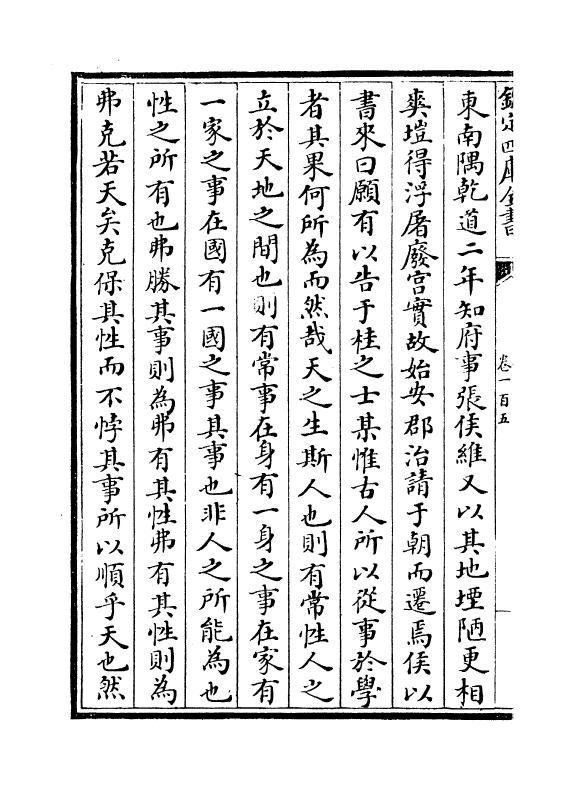 欽定四庫全書
卷一百五
東南隅乾道二年知府事張侯維又以其地堙陋更相
爽塏得浮屠廢宫實故始安郡治請于朝而遷焉侯以
書來曰願有以告于桂之士某惟古人所以從事於學
者其果何所為而然哉天之生斯人也則有常性人之
立於天地之間也則有常事在身有一身之事在家有
一家之事在國有一國之事其事也非人之所能為也
性之所有也弗勝其事則為弗有其性弗有其性則為
弗克若天矣克保其性而不悖其事所以順乎天也然